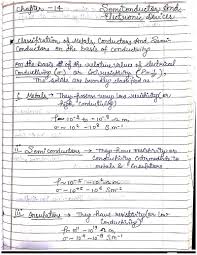 Chapter - 14
Semiconductor And
Electronic Devices
* Classification of Metals, Conductors And Semi-
Conductors on the basis of conductivity
On the basis of the relative value of electrical
Conductivity (σ) or resistivity
the solids are broadly classified as
I. Metals → They possess very low resistivity (or
high conductivity)
ρ ~ 10⁻² - 10⁻⁸ Ω m
σ ~ 10² - 10⁸ S m⁻¹
II. Semiconductors → They have resistivity or
conductivity intermediate to
metals & insulators
ρ ~ 10⁻⁵ - 10⁶ Ω m
σ ~ 10⁵ - 10⁻⁶ S m⁻¹
III. Insulators → They have resistivity (or low
conductivity)
ρ ~ 10¹¹ - 10¹⁹ Ω m
σ ~ 10⁻¹¹ - 10⁻¹⁹ S m⁻¹